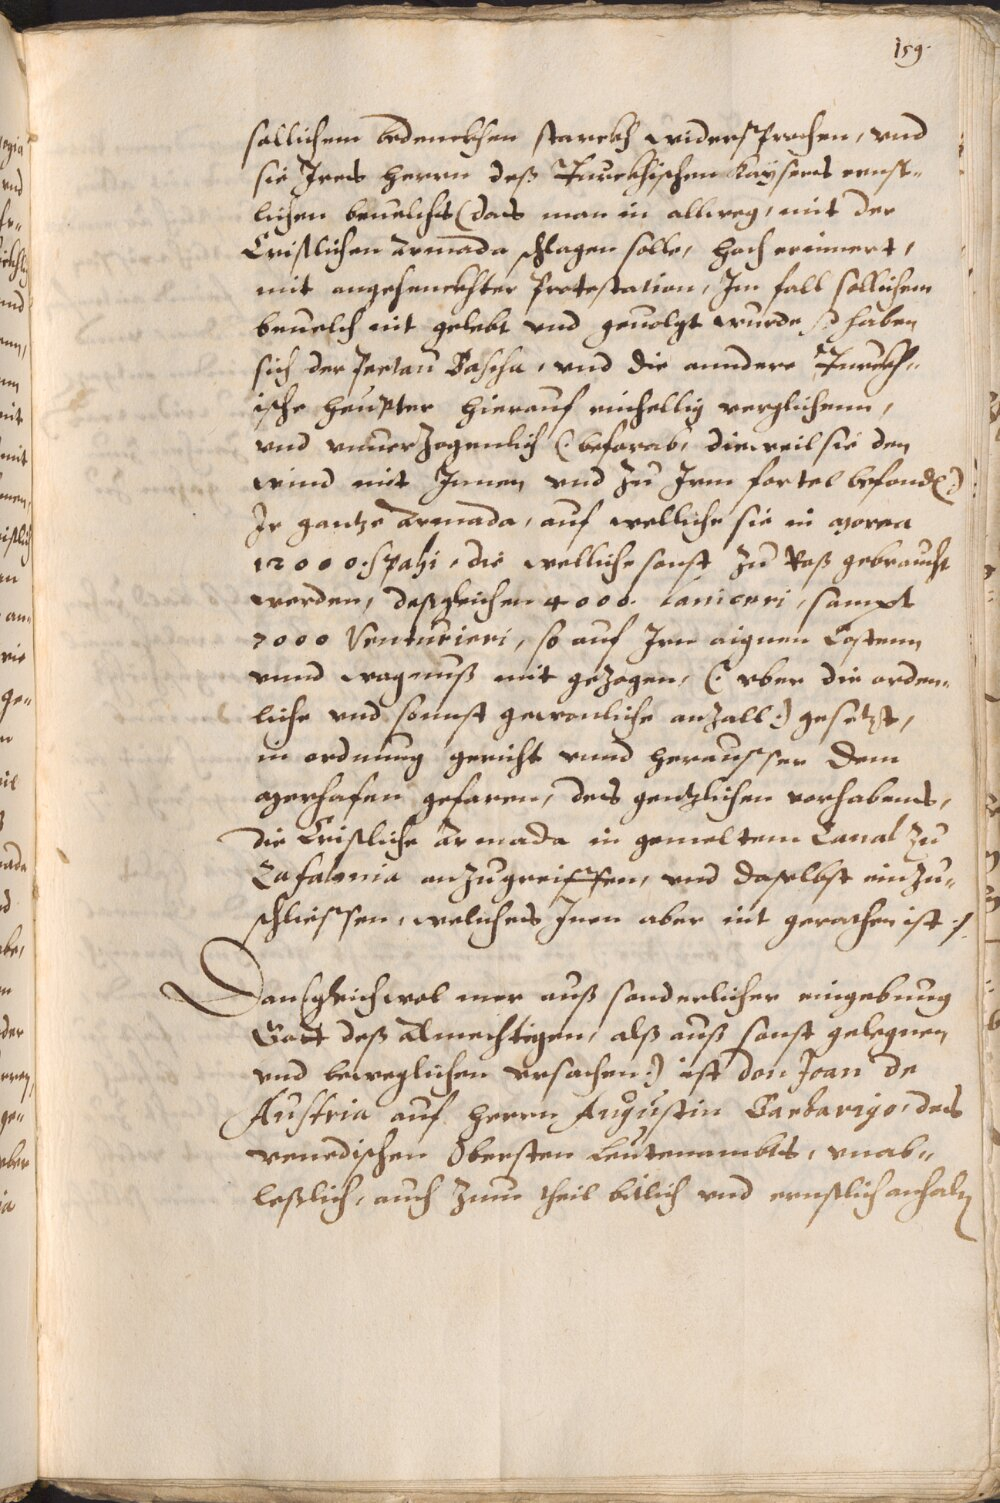 159.
sollichem bedenckhen starckh widersprochen, vnd
sie Ires herrn deß Türckhischen Kaysers ernst-
lichen beuelchs (das man in allweg, mit der
Cristlichen Armada schlagen solle, hoch erinnert,
mit angehenckhter Protestation, Im fall sollichem
beuelch nit gelebt vnd geuolgt wurde, so haben
sich der Pertau Bascha, vnd die anndere Türckh-
ische heupter hierauf einhellig verglichenn,
vnd vnuerzogenlich (: beforab, dieweil sie den
wind mit Innen vnd zu Irm fortel befond(en):)
Ir gantze Armada, auf welliche sie in Morea
12000. Spahi, die welliche sonst zu Roß gebraucht
werden, deßgleichen 4000. Janiceri, sampt
2000 Venturieri, so auf Irn aignen Costenn
vnnd wagnuß mit gezogen, (: vber die orden-
liche vnd sonnst gewonliche anzall:) gesetzt,
in ordnung gericht vnnd herausser dem
Merhafen gefaren, des gentzlichen vorhabens,
die Cristliche Armada in gemeltem Canal zu
Zafalonia anzugreiffen, vnd daselbst einzu-
schliessen, welliches Inen aber nit gerathen ist :/.
Dan (gleichwol mer auß sonderlicher eingebung
Gott deß Almechtigen, alß auß sonst gelegnen
vnd beweglichen vrsachen:) ist don Joan de
Austria auf herrn Augustin Barbarigo, des
venedischen Obersten Leutenambts, vnab-
leßlich, auch zum theil bitlich vnd ernstlich anhalt(en)